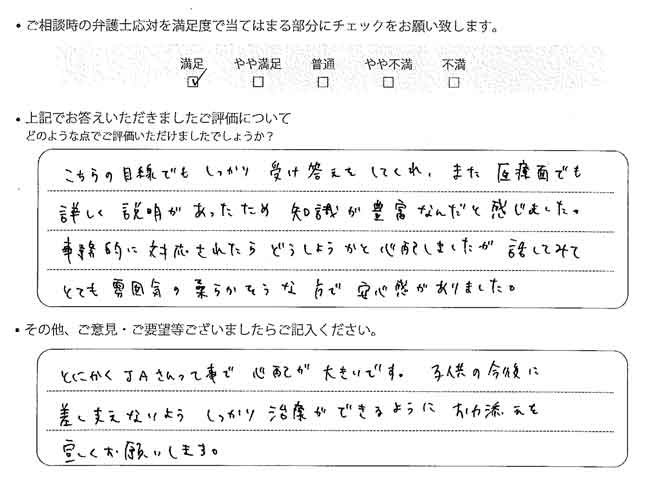 ・ご相談時の弁護士応対を満足度で当てはまる部分にチェックをお願い致します。
満足 やや満足 普通 やや不満 不満
・上記でお答えいただきましたご評価について
どのような点でご評価いただけましたでしょうか？
こちらの目線でも しっかり 受け答えもしてくれ、また 医療面でも
詳しく 説明が あったため 知識が 豊富なんだと 感じました。
事務的に 対応されたら どうしようかと 心配しましたが 話してみて
とても 雰囲気の 柔らかそうな 方で 安心感がありました。
・その他、ご意見・ご要望等ございましたらご記入ください。
とにかく JAさんって事で 心配が 大きいです。 子供の今後に
差し支えないよう しっかり 治療ができるように お力添えを
宜しくお願いします。